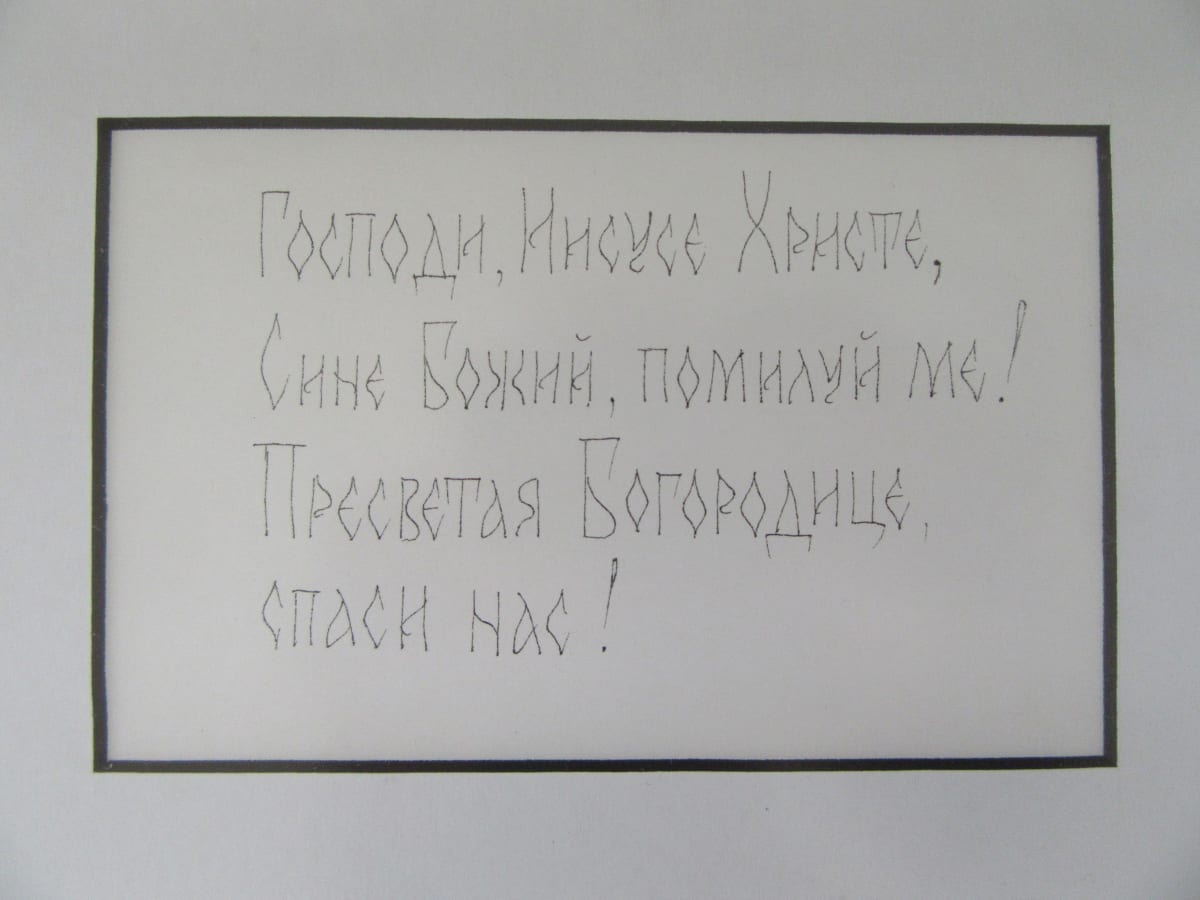 Господи, Иисусе Христе,
Сине Божий, помилуй ме!
Пресветая Богородице,
спаси нас!